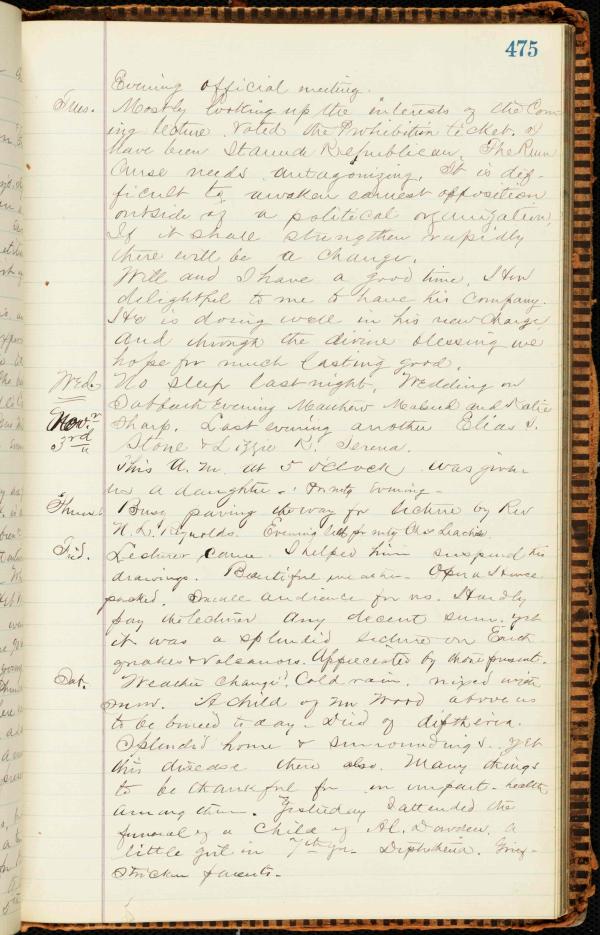 475
Evening official meeting.
Tues. Mostly looking up the interests of the Com-
ing lecture. Voted the Prohibition ticket. I
have been Staunch Republican. The Rum
Curse needs antagonizing. It is dif-
ficult to awaken earnest opposition
outside of a political organization.
If it shall strengthen rapidly
there will be a change.
Will and I have a good time. How
delightful to me to have his company.
He is doing well in his new charge
and through the divine blessing we
hope for much lasting good.
Wed. No sleep last night. Wedding on
Nov. Sabbath Evening and Katie
3rd Sharp. Last evening another Elias S.
Stone & Lizzie D. Serena.
This A.M. at 5 o'clock was given
us a daughter. Evening -
Thurs. Busy paving the way for lecture by Rev
N. L. Reynolds. Evening
Frid. Lecturer came. I helped him suspend his
drawings. Beautiful weather. Opera House
packed. Small audience for us. Hardly
pay the lecturer any decent sum. yet
it was a splendid lecture on Earth
quakes & Volcanoes. Appreciated by those present.
Sat. Weather changed. Cold rain. mixed with
snow. A child of Mr Wood above us
to be buried today - Died of diptheria.
Splendid home & surroundings. yet
this disease there also. Many things
to be thankful for in impart - health
among them. Yesterday I attended the
funeral of a child of Al. Dowden, a
little girl in 7th yr. Diphtheria. Grief-
stricken parents.